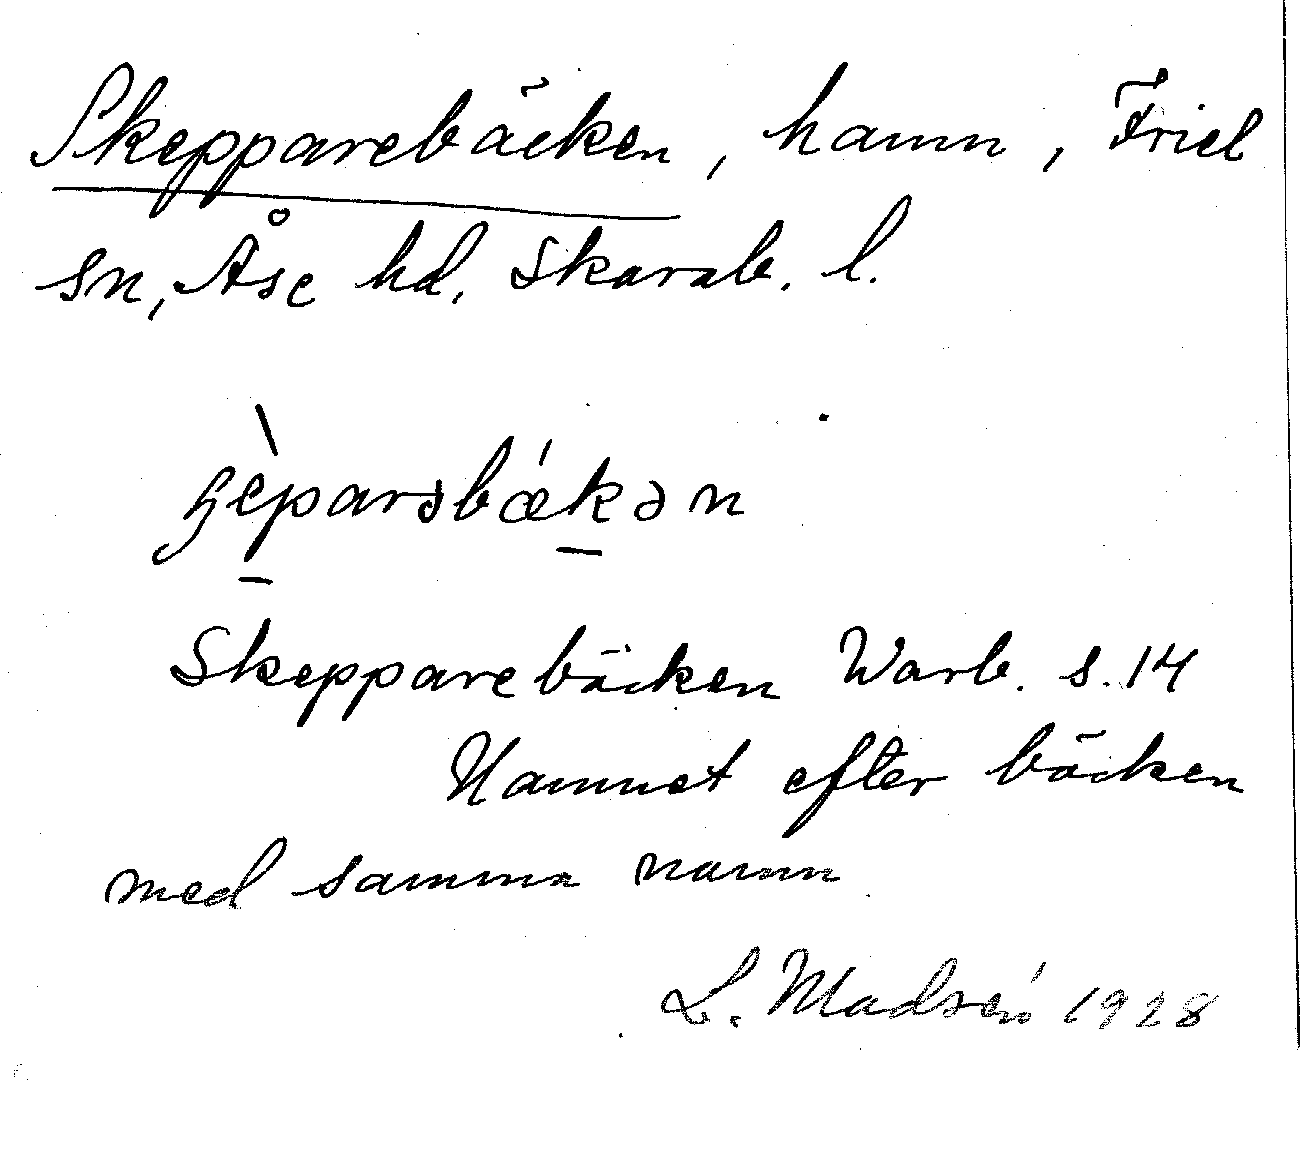 Skepparebäcken, hamn, Friel
sn, Åse hd. Skarab. l.
ʂèparəbǽkən
Skepparebäcken Warb. s. 14
Namnet efter bäcken
med samma namn
L. Madsén 1928